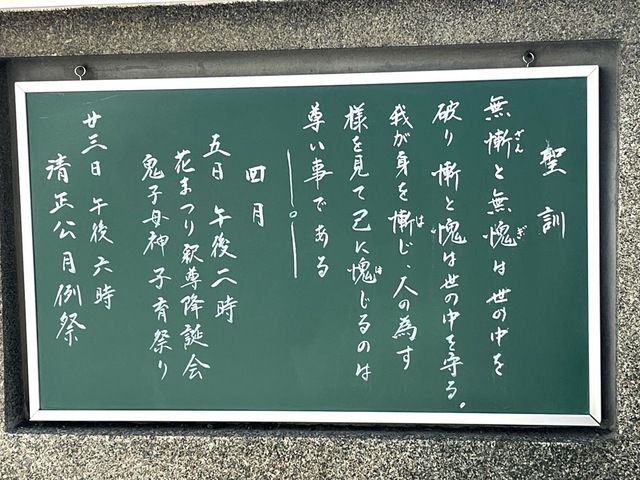 聖訓
無慚と無愧は世の中を
破り慚と愧は世の中を守る。
我が身を慚じ、人の為す
様を見て己に愧じるのは
尊い事である
四月
五日 午後二時
花まつり釈尊降誕会
鬼子母神子育祭り
廿三日 午後六時
清正公月例祭